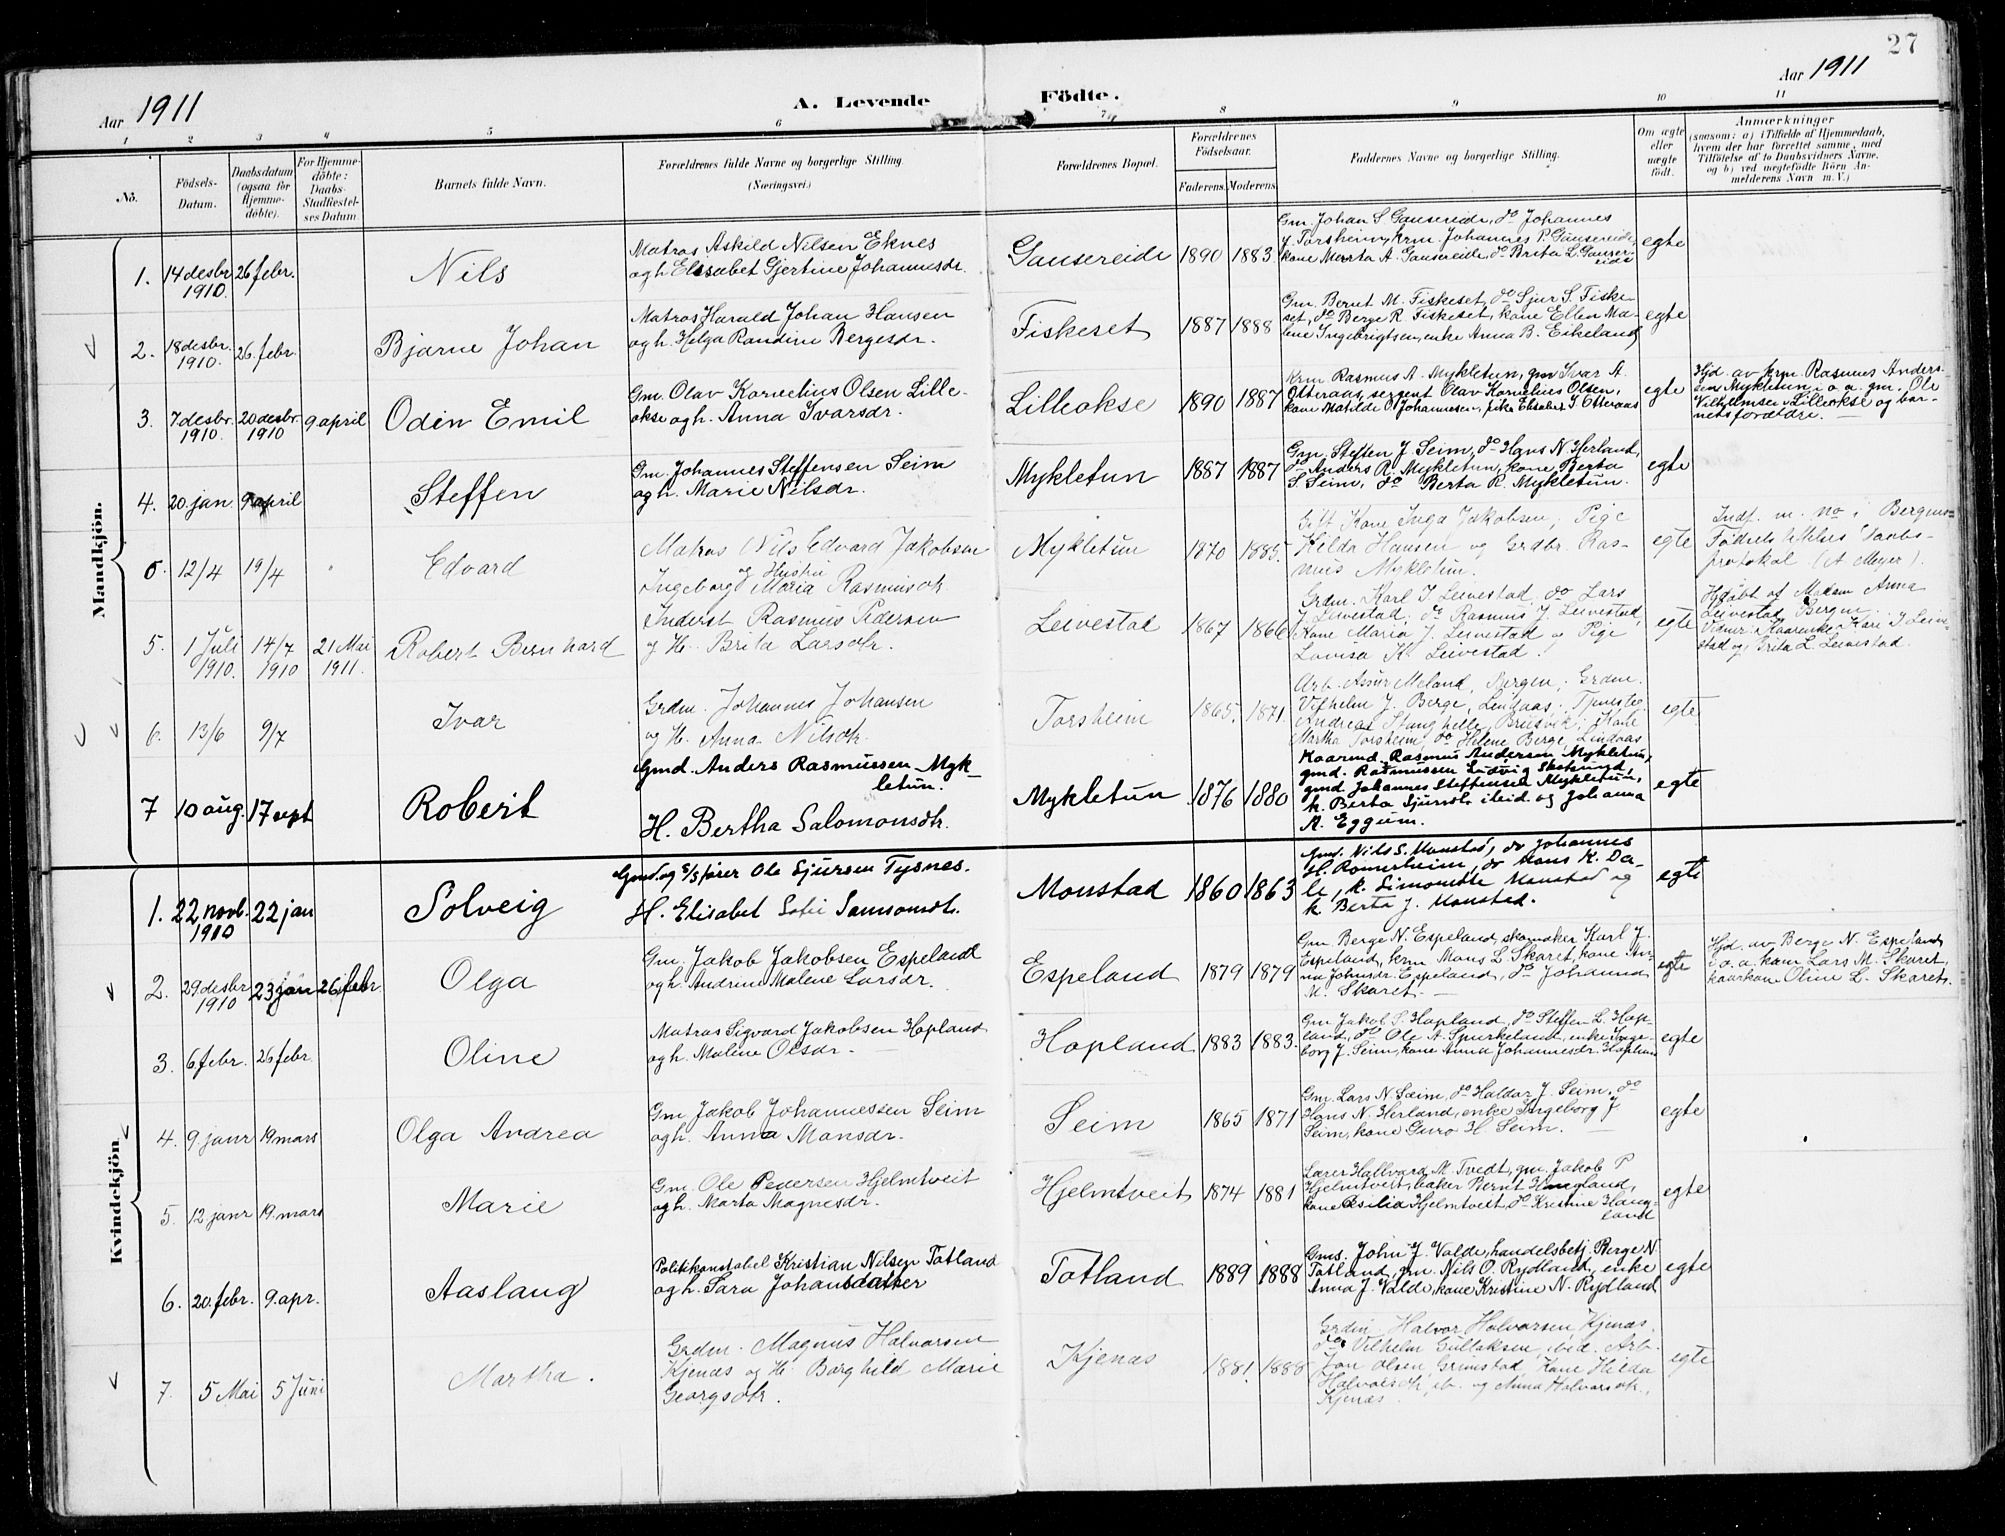 27
Aar 1911
A. Levende Födte.
Aar 1911
1 2 3 4 5 6 7 8 9 10 11
Nö.
Födsels-
Datum.
Daabsdatum
(ogsaa for
Hjemme-
döbte).
For Hjemme-
döbte:
Daabs-
Stadfæstel-
ses Datum
Barnets fulde Navn.
Forældrenes fulde Navne og borgerlige Stilling
(Næringsvei.)
Forældrenes Bopæl.
Forældrenes
Födselsaar.
Faderens. Moderens.
Faddernes Navne og borgerlige Stilling.
Om ægte
eller
uægte
født.
Anmærkninger
(saasom: a) i Tilfælde af Hjemmedaab,
hvem der har forrettet samme, med
Tilföielse af to Daabsvidners Navne,
og b) ved uægtefødte Börn An-
melderens Navn m. V.)
Mandkjön.
1. 14 desbr 1910. 26 febr.
Nils
Matros Askild Nilsen Eknes
og h. Elisabet Gjertine Johannesdr.
Gausereide 1890 1883
Gm. Johan S. Gausereide, do Johannes
J. Torsheim, krm. Johannes P. Gausereide,
kone Marta A. Gausereide, do Brita L. Gauser-
eide
egte
2. 18 desbr. 1910. 26. febr.
Bjarne Johan
Matros Harald Johan Hansen
og h. Helga Randine Bergesdr.
Fiskeset 1887 1888
Gm. Bernt M. Fiskeset, do Sjur S. Fiske-
set, do Berge R. Fiskeset, kone Ellen Ma-
lene Ingebrigtsen, enke Anna B. Eikeland
egte
3. 7 desbr. 1910. 20 desbr. 1910 9 april
Odin Emil
Gm. Olav Kornelius Olsen Lille-
okse og h. Anna Ivarsdr.
Lilleokse 1890 1887
Krm Rasmus A. Mykletun, gm Ivar A.
Otteraas, sergent Olav Kornelius Olsen,
kone Matilde O. Johannesen, pike Elisabet I. Otteraas
egte
Hjd. av krm. Rasmus Anders-
sen Mykletun i o. a. gm. Ole
Vilhelmsen Lilleokse og bar-
netsforældre. —
4. 20. jan 9 april
Steffen
Gm. Johannes Steffensen Seim
og h. Marie Nilsdr.
Mykletun 1887 1887
Gm. Steffen J. Seim, do Hans N. Herland,
do Anders R. Mykletun, kone Berta
S. Seim, do Berta R. Mykletun.
egte
5. 12/4 19/4
Edvard
Matros Nils Edvard Jakobsen
og Hustru
Ingeborg Maria Rasmusdtr
Mykletun 1870 1885.
Gift Kone Inga Jakobsen, Pige
Hilda Hansen og Grdbr. Ras-
mus Mykletun.
egte
Indf. m. no i Bergens
Fødsels Daabs-
protokol (A Meyer).
5. 1 Juli 1910. 14/7 1910 21 Mai 1911.
Robert Bernhard
Inderst Rasmus Pedersen
og H. Brita Larsdtr.
Leivestad 1867 1866
Grdm. Karl I Leivestad, do Lars
J. Leivestad, do Rasmus J. Leivestad,
Kone Maria J. Leivestad og Pige
Lovisa K. Leivestad.
egte
Hjdøbt af Madam Anna
Leivestad, Bergen
Vidner: Kaarenke Kari I Leive-
stad og Brita L. Leivestad.
6. 13/6 9/7
Ivar
Grdm. Johannes Johansen
og H. Anna Nilsdtr.
Torsheim 1865. 1871.
Arb. Assur Meland, Bergen, Grdm.
Vilhelm J. Berge, Lindaas, Tjenesteg.
Andreas Stanghelle, Bruvik, Kone
Martha Torsheim, do Helene Berge, Lindaas
egte
7 10 aug. 17 sept
Robert
Gmd. Anders Rasmussen Myk-
letun.
H. Bertha Salomonsdtr.
Mykletun 1876 1880
Kaarmd. Rasmus Andersen Mykletun,
gmd. Rasmussen Ludvig Skotsund,
gmd Johannes Steffensen Mykletun,
k. Berta Sjursdtr ibid. og Johanna
M. Eggum.
egte
Kvindekjön.
1. 22 novb. 1910 22 jan
Solveig
Gmd. og s/s fører Ole Sjursen Tysnes.
H. Elisabet Sofie Samsonsdtr.
Monstad 1860 1863
Gmd. Nils S. Monstad, do Johannes
H. Romerheim, do Hans K. Da-
le, k. Simonette Monstad og
k. Berta J. Monstad.
egte
2. 29 desbr 1910 23 jan 26 febr
Olga
Gm. Jakob Jakobsen Espeland
og h. Andrine Malene Larsdr.
Espeland 1879 1879
Gm. Berge N. Espeland, skomaker Karl J.
Espeland, krm Mons L. Skaret, kone An-
na Johnsdr. Espeland, do Johanna
M. Skaret. —
egte
Hjd. av Berge N. Espeland
i o. a. kam Lars M. Skaret,
kaarkon Oline L. Skaret.
3. 6 febr. 26 febr.
Oline
Matros Sigvard Jakobsen Hopland
og h. Malene Olsdr. —
Hopland 1883 1883.
Gm Jakob S. Hopland, do Steffen L. Hop-
land, do Ole A. Spurkeland, enke Inge-
borg J. Seim, kone Anna Johannesdr. Hopland
egte
4. 9. janr 19. mars
Olga Andrea
Gm. Jakob Johannessen Seim
og h. Anna Monsdr.
Seim 1865 1871
Gm. Lars N. Seim, do Haldor J. Seim, do
Hans N. Herland, enke Ingeborg J
Seim, kone Guro H. Seim. —
egte
5. 12. janr 19. mars
Marie
Gm. Ole Pedersen Hjelmtveit
og h. Marta Magnesdr.
Hjelmtveit 1874 1881
Lærer Hallvard M. Tvedt, gm. Jakob P
Hjelmtveit, baker Bernt Haugland,
kone Cesilia Hjelmtveit, do Kristine Haug-
land
egte
6. 20. febr. 9. apr.
Aaslaug
Politikonstabel Kristian Nilsen Totland
og h. Sara Johansdatter
Totland 1889 1888
Gms. John J. Valde, handelsbetj. Berge N.
Totland, gm. Nils O. Rydland, enke
Anna J. Valde, kone Kristine N. Rydland
egte
7. 5 Mai 5 Juni
Martha.
Grdm. Magnus Halvorsen
Kjenæs og H. Borghild Marie
Georgsdtr.
Kjenæs 1881. 1888
Grdm. Halvor Halvorsen Kjenæs,
do Vilhelm Gullaksen, ibid. Arb.
Jon Olsen, Grimstad, Kone Hilda
Halvorsdtr, ib. og Anna Halvorsdtr.,
Kjenæs
egte